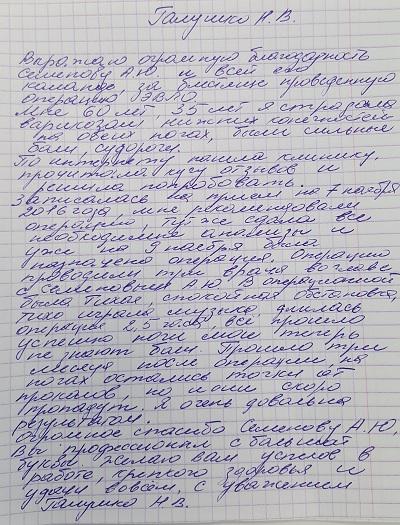 Галушко Н.В.
Выражаю огромную благодарность
Семенову А.Ю. и всей его
команде за проведенную
операцию ЭВЛО.
Мне 60 лет 35 лет я страдала
варикозом нижних конечностей
на обеих ногах, были сильные
боли, судороги.
По интернету нашла клинику,
прочитала кучу отзывов и
решила попробовать.
Записалась на прием на 7 ноября
2016 года, мне рекомендовали
операцию, тут же сдала все
необходимые анализы и
уже на 9 ноября была
назначена операция. Операцию
проводили три врача во главе
с Семеновым А.Ю. В операционной
была тихая, спокойная обстановка,
тихо играла музыка, длилась
операция 2,5 часа, все прошло
успешно ноги мои теперь
не знают боли. Прошло три
месяца после операции, на
ногах остались точки от
проколов, но и они скоро
пропадут, я очень довольна
результатом.
Огромное спасибо Семенову А.Ю,
Вы профессионал с большой
буквы Желаю вам успехов в
работе, крепкого здоровья и
удачи во всем, с уважением
Галушко Н.В.